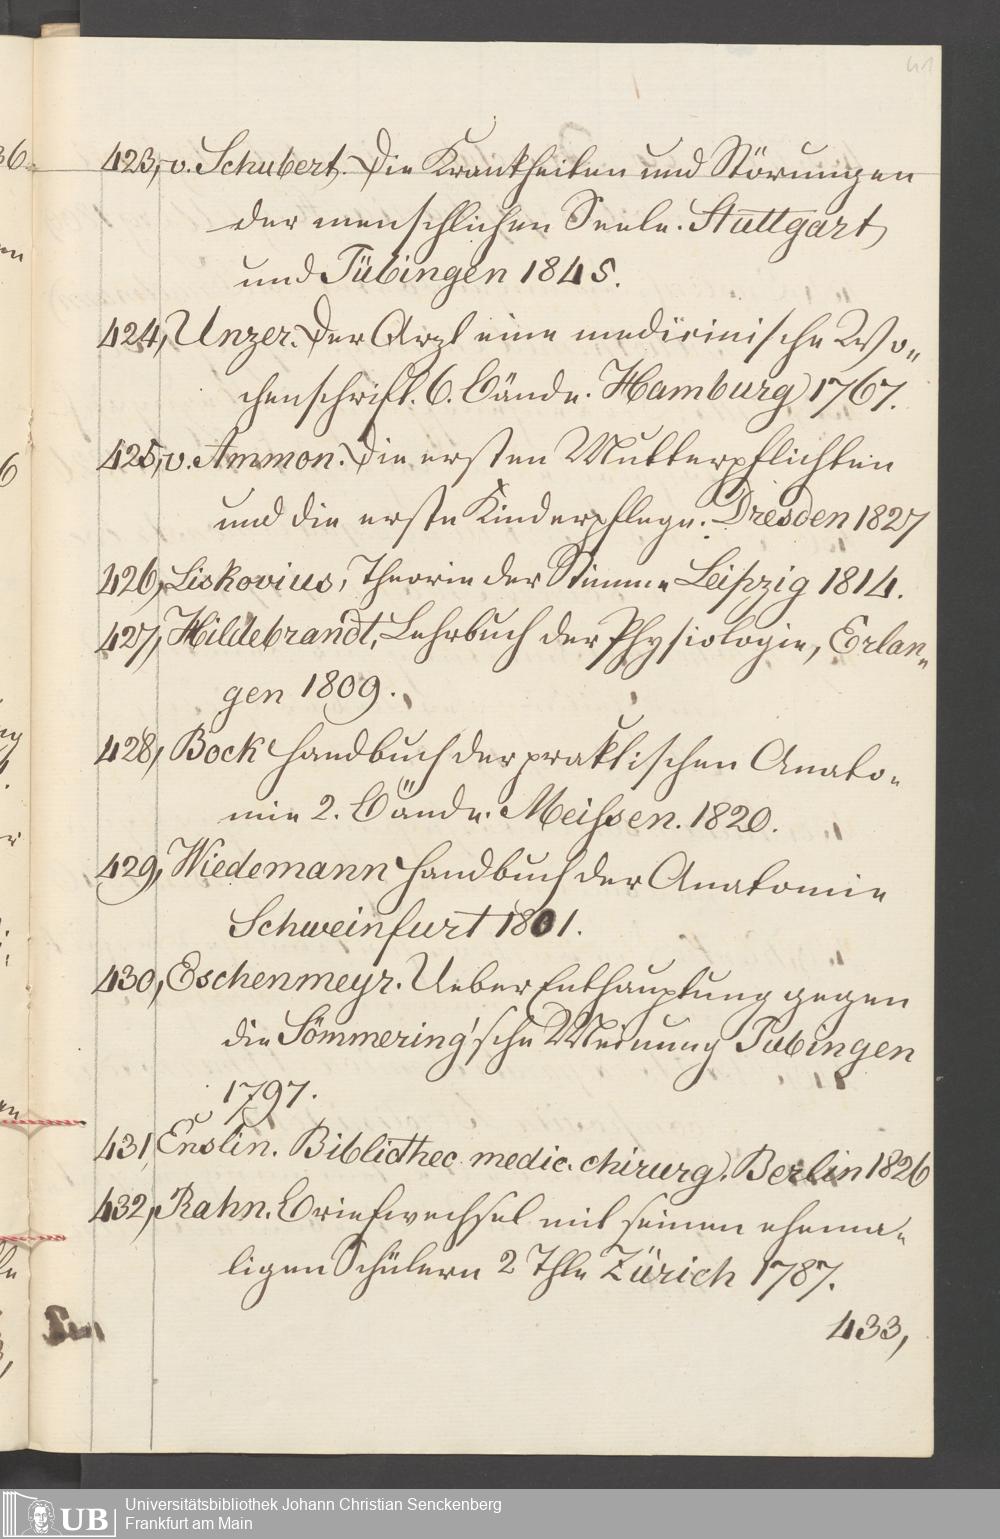 41
423, v. Schubert. Die Krankheiten und Störungen
der menschlichen Seele. Stuttgart
und Tübingen 1845.
424, Unzer. Der Arzt eine medicinische Wo„
chenschrift. 6. Bände. Hamburg 1767.
425, v. Ammon. Die ersten Mutterpflichten
und die erste Kinderpflege. Dresden 1827
426, Liskovius, Theorie der Stimme Leipzig 1814.
427, Hildebrandt, Lehrbuch der Physiologie, Erlan„
gen 1809.
428, Bock Handbuch der praktischen Anato„
mie 2. Bände. Meißen. 1820.
429, Wiedemann Handbuch der Anatomie
Schweinfurt 1801.
430, Eschenmeyr. Ueber Enthauptung gegen
die Sömmering'sche Meinung Tubingen
1797.
431, Enslin. Bibliothec. medic. chirurg. Berlin 1826
432, Rahn. Briefwechsel mit seinen ehema„
ligen Schülern 2 Thle Zürich 1787.
433,
UB
Universitätsbibliothek Johann Christian Senckenberg
Frankfurt am Main